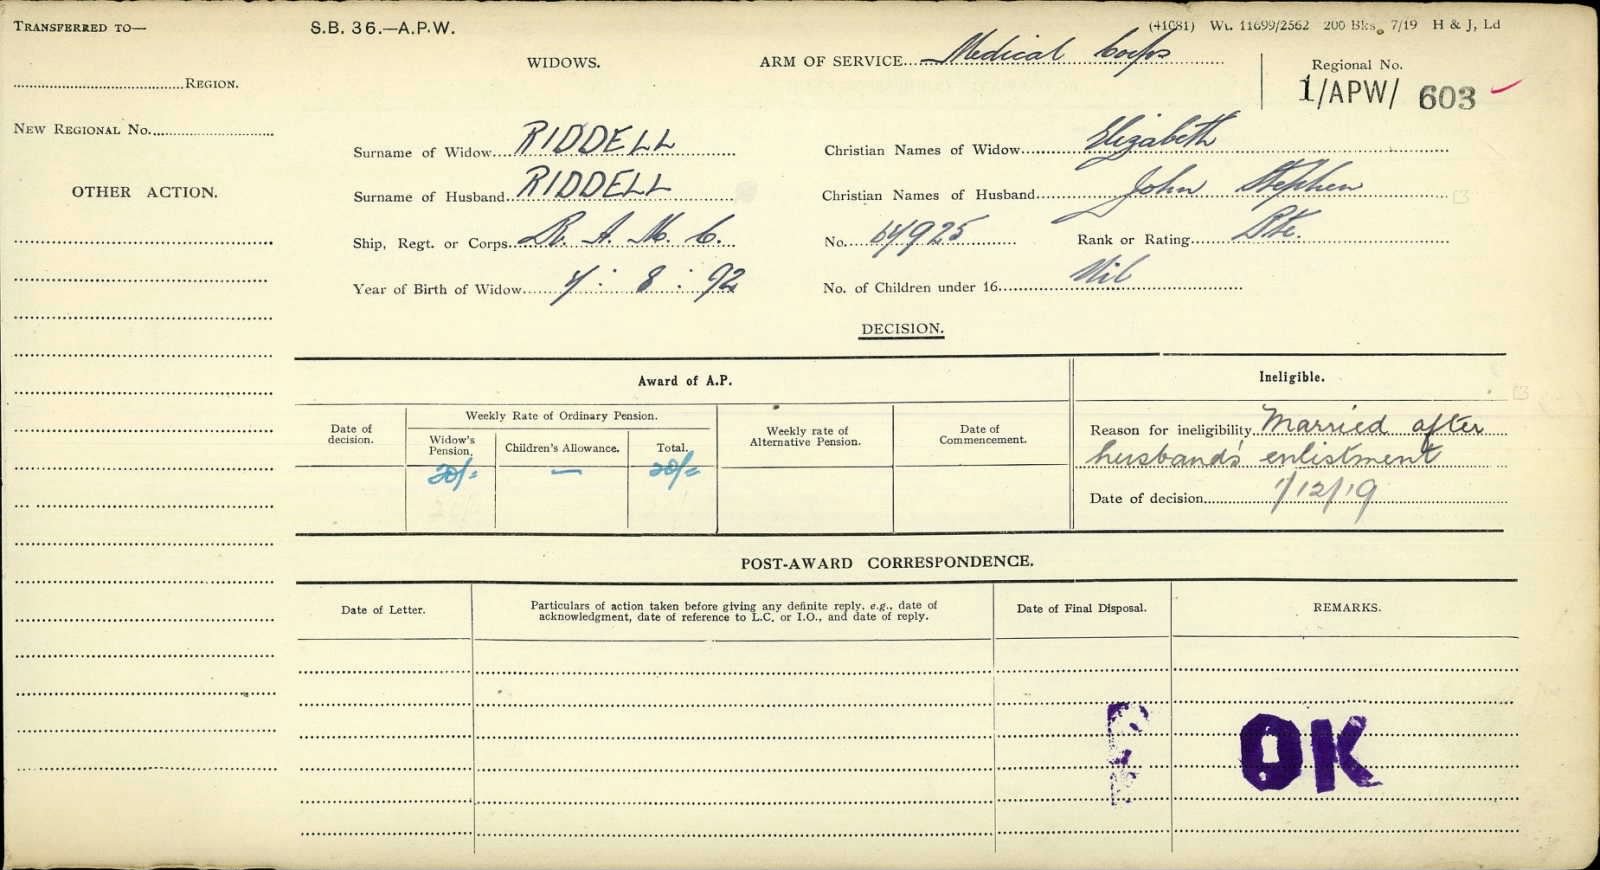 TRANSFERRED TO—
S.B. 36.—A.P.W.
(41081) Wt. 11699/2562 200 Bks. 7/19 H & J, Ld
WIDOWS.
ARM OF SERVICE Medical Corps
Regional No.
1/APW/ 603
REGION.
NEW REGIONAL NO.
Surname of Widow RIDDELL
Christian Names of Widow Elizabeth
OTHER ACTION.
Surname of Husband RIDDELL
Christian Names of Husband John Stephen
Ship, Regt. or Corps R. A. M. C.
No. 64925
Rank or Rating Pte.
Year of Birth of Widow 4 : 8 : 92
No. of Children under 16 Nil
DECISION.
Award of A.P.
Ineligible.
Date of decision.
Weekly Rate of Ordinary Pension.
Widow's Pension.
Children's Allowance.
Total.
Weekly rate of Alternative Pension.
Date of Commencement.
Reason for ineligibility Married after
husband's enlistment
20/= — 20/=
Date of decision 1/12/19
POST-AWARD CORRESPONDENCE.
Date of Letter.
Particulars of action taken before giving any definite reply, e.g., date of
acknowledgment, date of reference to L.C. or I.O., and date of reply.
Date of Final Disposal.
REMARKS.
OK